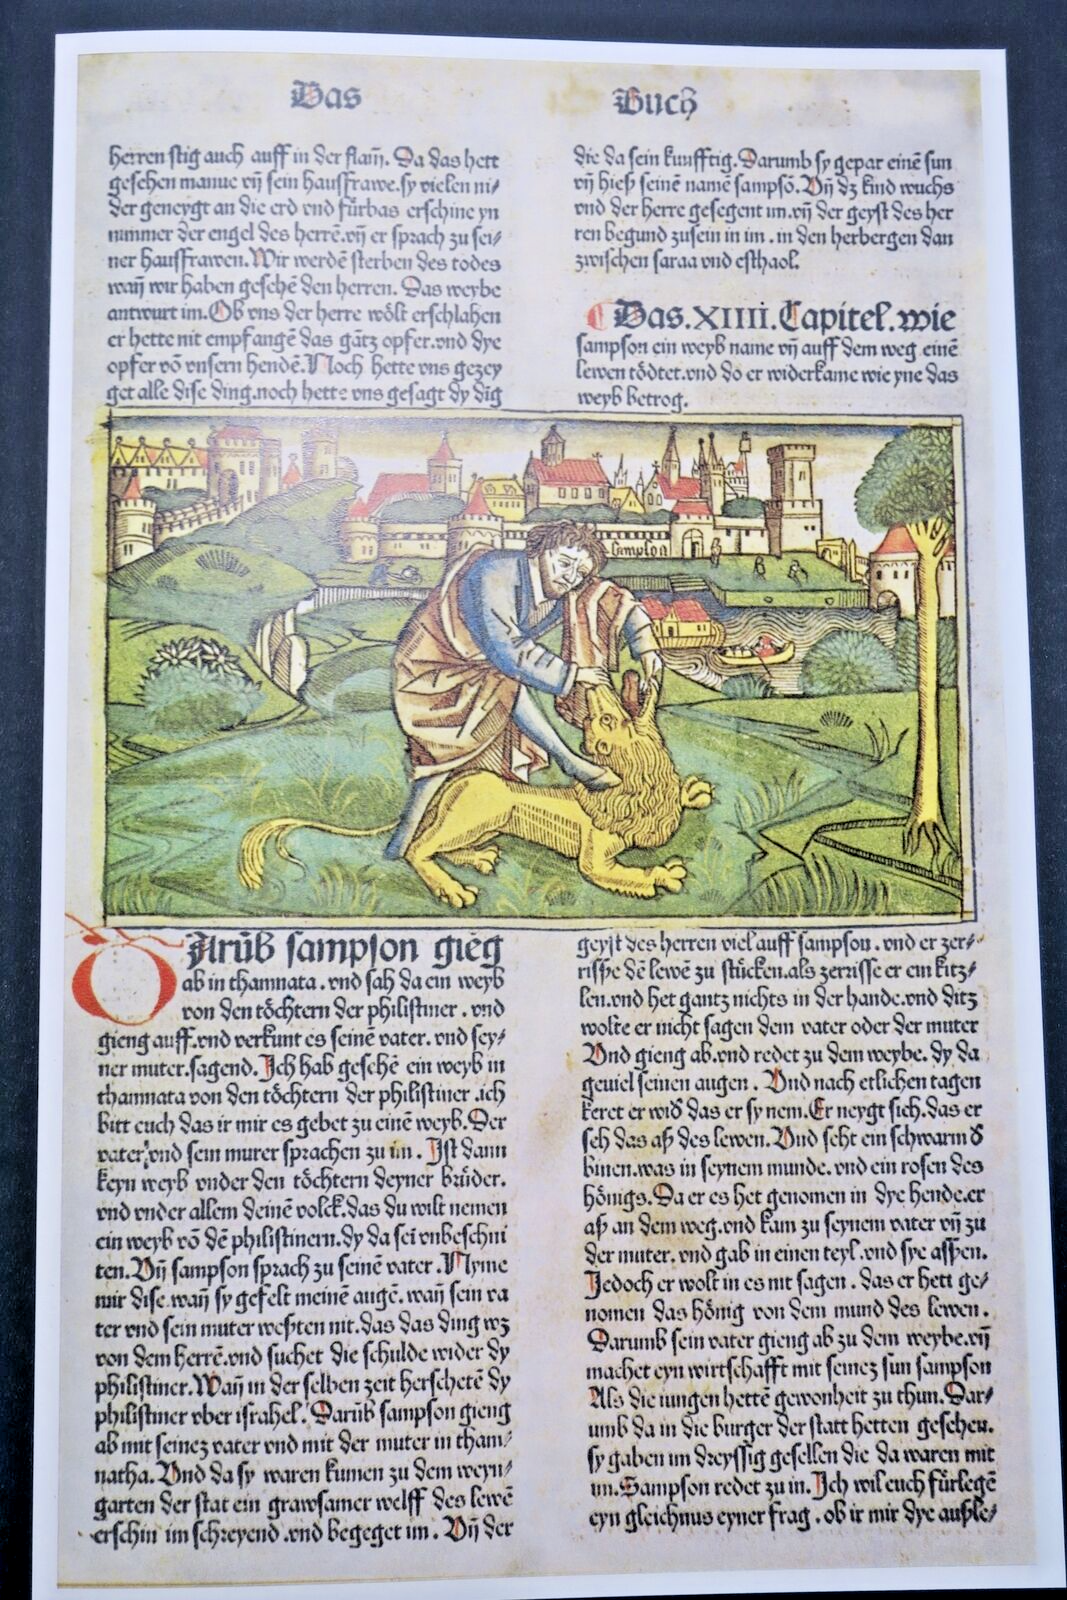 Das Buch
herren stig auch auff in der flam̃. Da das hett
gesehen manue vñ sein haußfrawe.sy vielen ni⸗
der geneygt an die erd vnd fürbas erschine yn
nimmer der engel des herrē.vñ er sprach zu sei⸗
ner haußfrawen. Wir werdē sterben des todes
wañ wir haben gesehē den herren. Das weybe
antwurt im. Ob vns der herre wölt erschlahen
er hette nit empfangē das gātz opfer.vnd dye
opfer vō vnsern hendē. Noch hette vns gezey
get alle dise ding.noch hette vns gesagt dy dig
die da sein kunfftig. Darumb sy gepar einē sun
vñ hieß seinē namē sampsō. Vñ dz kind wuchs
vnd der herre gesegent im.vñ der geyst des her
ren begund zusein in im. in den herbergen dan
zwischen saraa vnd esthaol.
Das.XIIII.Capitel.wie
sampson ein weyb name vñ auff dem weg einē
lewen tödtet.vnd do er widerkame wie yne das
weyb betrog.
Sampson
DArūb sampson gieg
ab in thamnata. vnd sah da ein weyb
von den töchtern der philistiner. vnd
gieng auff.vnd verkunt es seinē vater. vnd sey⸗
ner muter.sagend. Ich hab gesehē ein weyb in
thamnata von den töchtern der philistiner.ich
bitt euch das ir mir es gebet zu einē weyb. Der
vater vnd sein muter sprachen zu im. Ist dann
keyn weyb vnder den töchtern deyner brüder.
vnd vnder allem deinē volck.das du wilt nemen
ein weyb vō dē philistinern.dy da sei vnbeschni
ten. Vñ sampson sprach zu seinē vater. Nyme
mir dise.wañ sy gefelt meinē augē. wañ sein va
ter vnd sein muter weßten nit.das das ding wz
von dem herrē.vnd suchet die schulde wider dy
philistiner. Wañ in der selben zeit herschetē dy
philistiner vber israhel. Darūb sampson gieng
ab mit seinez vater vnd mit der muter in tham⸗
natha. Vnd da sy waren kumen zu dem weyn⸗
garten der stat ein grawsamer welff des lewē
erschin im schreyend.vnd begeget im. Vñ der
geyst des herren viel auff sampson. vnd er zer⸗
risse dē lewē zu stücken.als zerrisse er ein kitz⸗
len.vnd het gantz nichts in der hande.vnd ditz
wolte er nicht sagen dem vater oder der muter
Vnd gieng ab.vnd redet zu dem weybe. dy da
geuiel seinen augen. Vnd nach etlichen tagen
keret er wid das er sy nem. Er neygt sich.das er
seh das aß des lewen. Vnd seht ein schwarm d
binen.was in seynem munde. vnd ein rosen des
hönigs. Da er es het genomen in dye hende.er
aß an dem weg.vnd kam zu seynem vater vñ zu
der muter. vnd gab in einen teyl.vnd sye assen.
Jedoch er wolt in es nit sagen. das er hett ge⸗
nomen das hönig von dem mund des lewen.
Darumb sein vater gieng ab zu dem weybe.vñ
machet eyn wirtschafft mit seinez sun sampson
Als die iungen hettē gewonheit zu thun. Dar⸗
umb da in die burger der statt hetten gesehen.
sy gaben im dreyssig gesellen die da waren mit
im. Sampson redet zu in. Ich wil euch fürlegē
eyn gleichnus eyner frag. ob ir mir dye außle⸗